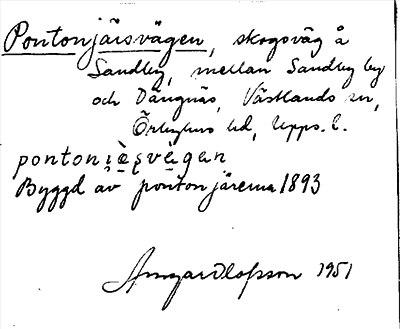 Pontonjärsvägen, skogsväg å
Sandby, mellan Sandby by
och Dängnäs, Västlands sn,
Örbyhus hd, Upps. l.
pontoni̯è̱ʂvè̱gan
Byggd av pontonjärerna 1893
Olofsson 1951